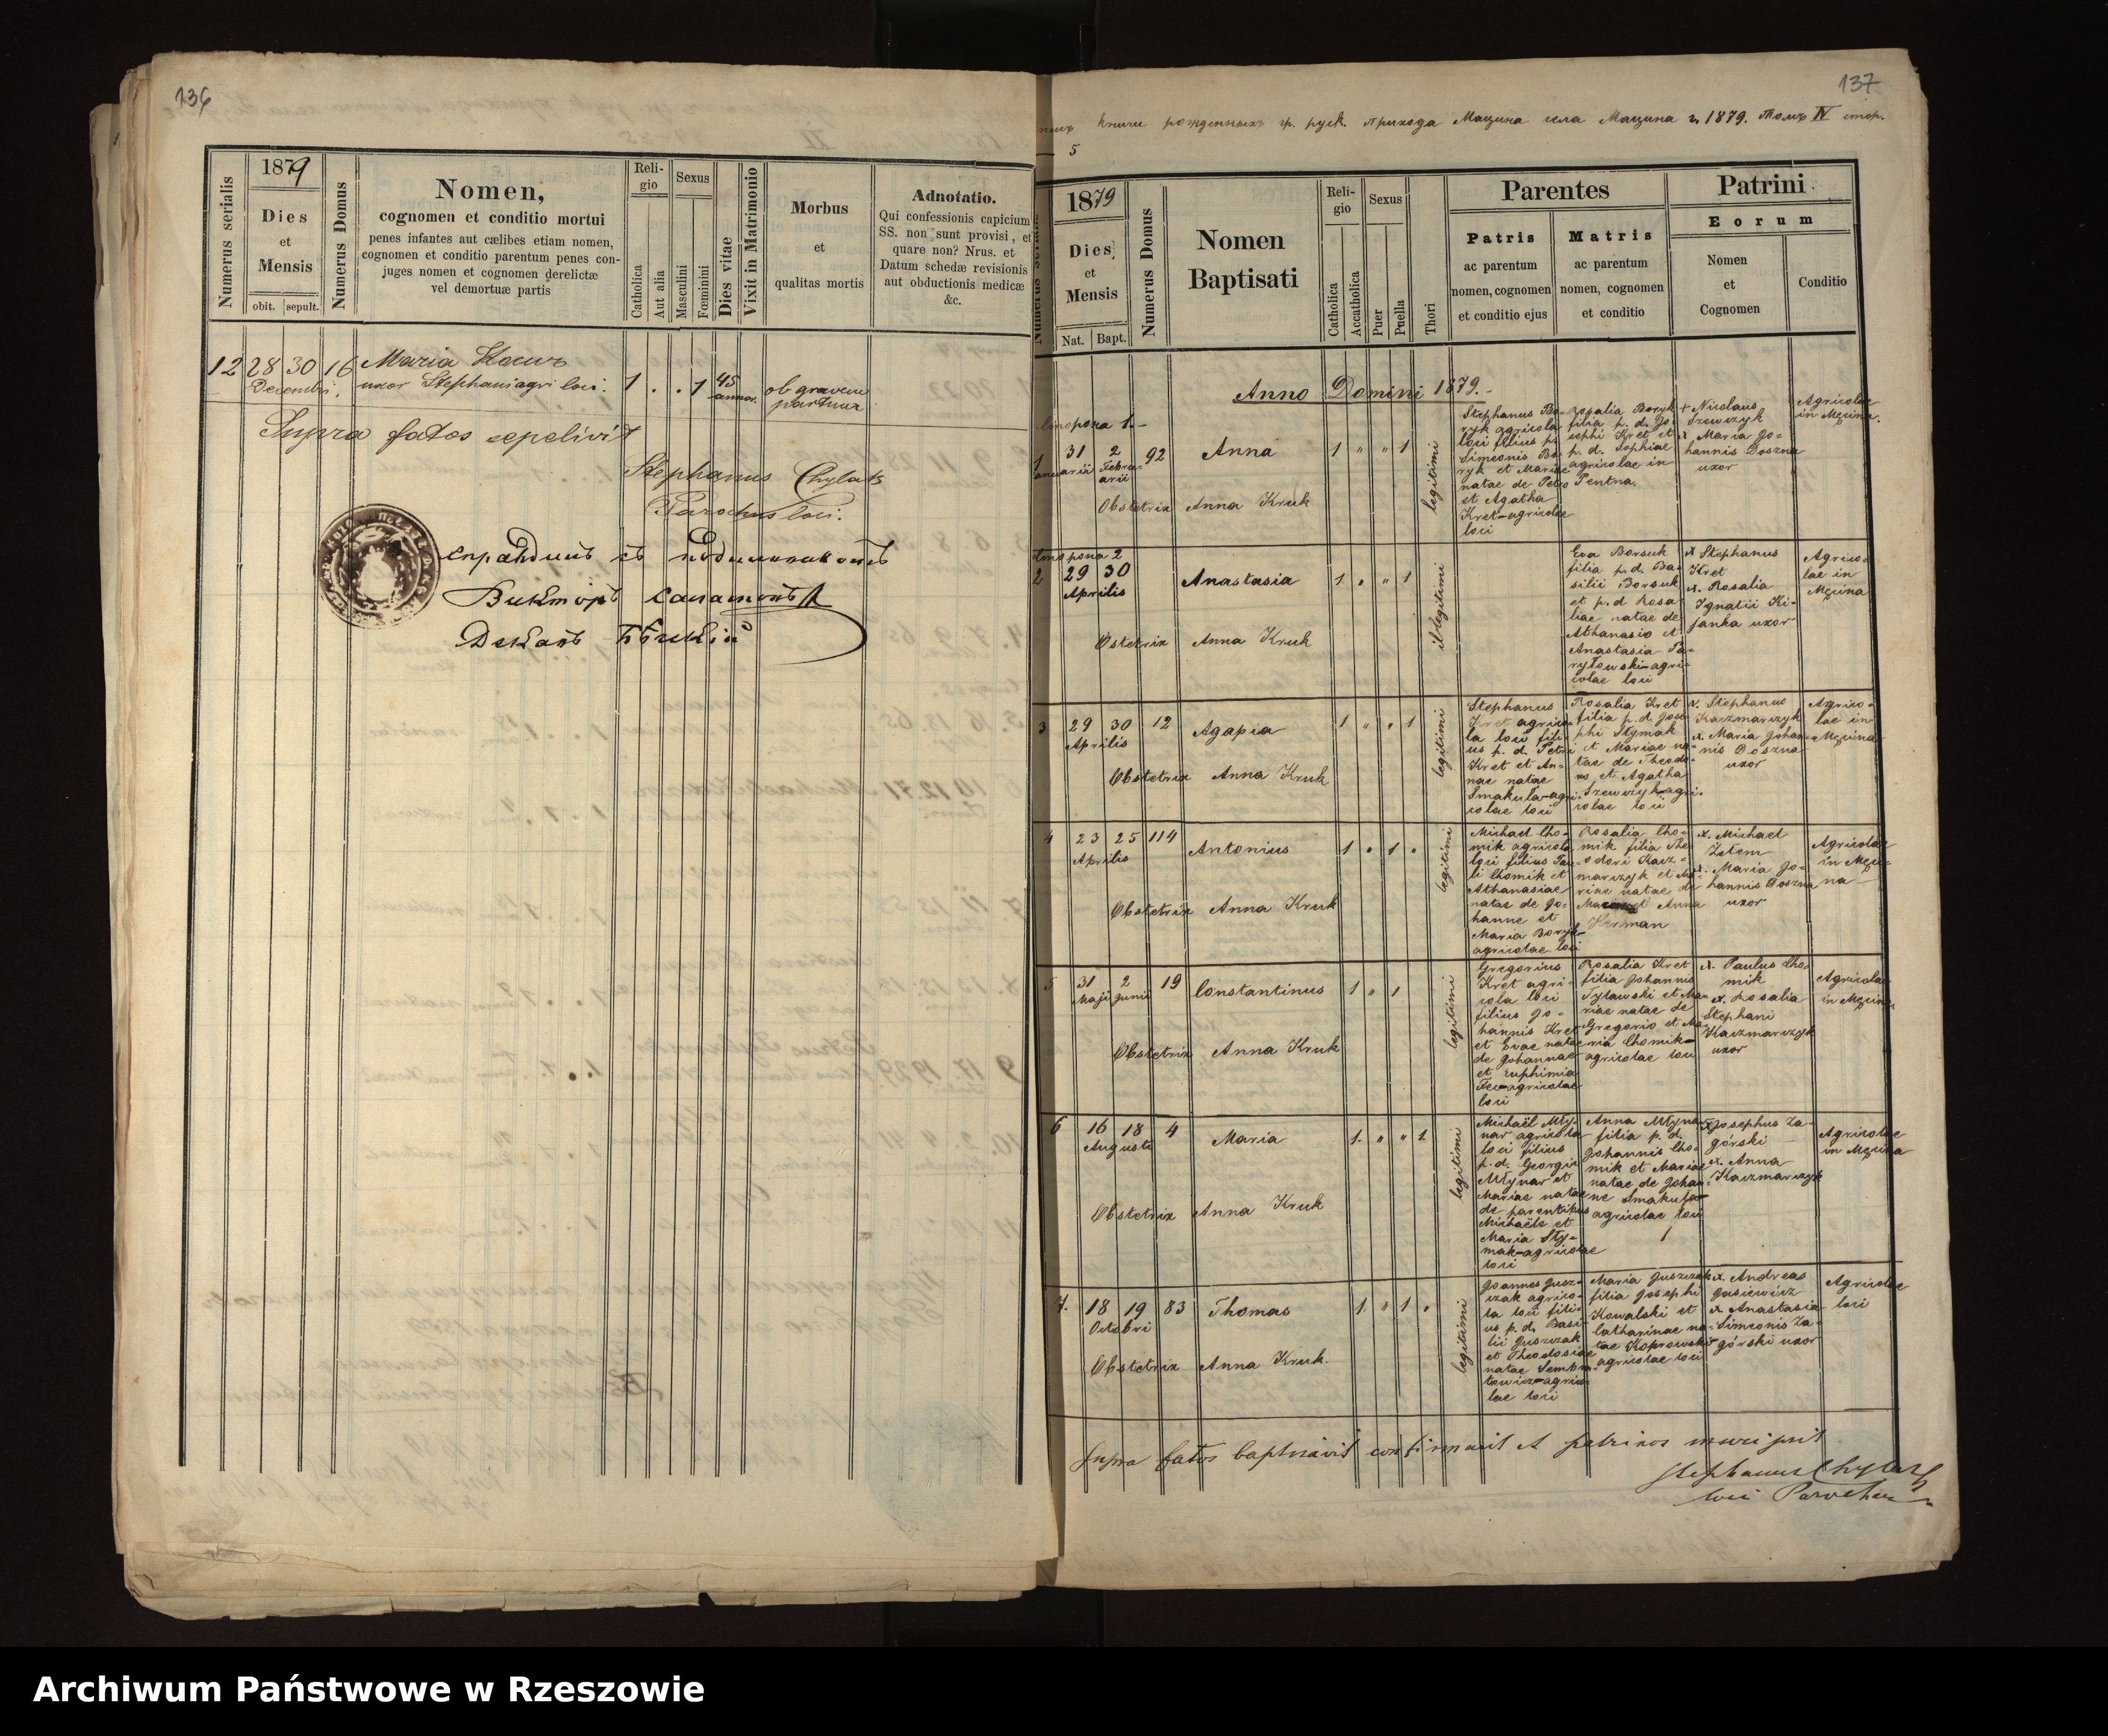 136
Numerus serialis
1879
Dies
et
Mensis
obit. sepult.
Numerus Domus
Nomen,
cognomen et conditio mortui
penes infantes aut cælibes etiam nomen,
cognomen et conditio parentum penes con-
juges nomen et cognomen derelictæ
vel demortuæ partis
Reli-
gio
Catholica
Aut alia
Sexus
Masculini
Fœminini
Dies vitae
Vixit in Matrimonio
Morbus
et
qualitas mortis
Adnotatio.
Qui confessionis capicium
SS. non sunt provisi, et
quare non? Nrus. et
Datum schedæ revisionis
aut obductionis medicæ
&c.
12 28 30 16 Maria
Decembri. uxor Stephani agri loci. 1 . . 1 45 annor. ob gravem
partum
Supra fatos sepelivit
Stephanus Chylak
Parochus loci.
137
книги рожденныхъ гр. руск. прихода Мацина села Мацина г. 1879. Томъ IV стор.
5
1879
Dies
et
Mensis
Nat. Bapt.
Numerus Domus
Nomen
Baptisati
Reli-
gio
Catholica
Accatholica
Sexus
Puer
Puella
Thori
Parentes
Patris
ac parentum
nomen, cognomen
et conditio ejus
Matris
ac parentum
nomen, cognomen
et conditio
Patrini
Eorum
Nomen
et
Cognomen
Conditio
Anno Domini 1879.-
1 31 2 92 Anna 1 " " 1 legitimi
Februarii
Obstetrix Anna Kruk
Stephanus Bo-
ryk agricola
loci filius p.
Simeonis Bo-
ryk et Mariae
natae de Petro
et Agatha
Kret-agricolae
loci
Rosalia Boryk
filia p. d. Jo-
sephi Kret et
p. d. Sophiae
agricolae in
Pentna.
Nicolaus
Szewczyk
x Maria Jo-
hannis Doszna
uxor
Agricolae
in Męcina.
2 29 30 Anastasia 1 " " 1 illegitimi
Aprilis
Ostetrix Anna Kruk
Eva Borsuk
filia p. d. Ba-
silii Borsuk
et p. d Rosa-
liae natae de
Athanasio et
Anastasia
agri-
colae loci
x Stephanus
Kret
x. Rosalia
Ignatii Ki-
janka uxor
Agrico-
lae in
Męcina
3 29 30 12 Agapia 1 " " 1 legitimi
Aprilis
Obstetrix Anna Kruk
Stephanus
Kret agrico-
la loci fili-
us p. d. Petri
Kret et An-
nae natae
Smakula-agri-
colae loci
Rosalia Kret
filia p. d. Jose-
phi Stymak
et Mariae na-
tae de Theodo-
ro et Agatha
Szewczyk-agri-
colae loci
x. Stephanus
Kaczmarczyk
x. Maria Johan-
nis Doszna
uxor
Agrico-
lae in
Męcina
4 23 25 114 Antonius 1 " 1 " legitimi
Aprilis
Obstetrix Anna Kruk
Michael Cho-
mik agricola
loci filius Pau-
li Chomik et
Athanasiae
natae de Jo-
hanne et
Maria Boryk-
agricolae loci
Rosalia Cho-
mik filia The-
odori Kacz-
marczyk et Ma-
riae natae de
et Anna
Herman
x. Michael
x. Maria Jo-
hannis Doszna
uxor
Agricolae
in Męci-
na
5 31 2 19 Constantinus 1 " 1 legitimi
Maji Junii
Obstetrix Anna Kruk
Gregorius
Kret agri-
cola loci
filius Jo-
hannis Kret
et Evae natae
de Johannae
et Euphimia
Fec-agricolae
loci
Rosalia Kret
filia Johannis
Tylawski et Ma-
riae natae de
Gregorio et Ma-
ria Chomik-
agricolae loci
x. Paulus Cho-
mik
x. Rosalia
Stephani
Kaczmarczyk
uxor
Agricolae
in Męcina
6 16 18 4 Maria 1. " " 1. legitimi
Augusti
Obstetrix Anna Kruk
Michaël Mły-
nar agricola
loci filius
p. d. Georgii
Młynar et
Mariae natae
de parentibus
Michaële et
Maria Sty-
mak-agricolae
loci
Anna Młynar
filia p. d.
Johannis Cho-
mik et Mariae
natae de Johan-
ne Smakuła
agricolae loci
x Josephus Za-
górski
x. Anna
Kaczmarczyk
Agricolae
in Męcina
7. 18 19 83 Thomas 1. " 1 " legitimi
Octobri
Obstetrix Anna Kruk.
Joannes Jusz-
czak agrico-
la loci fili-
us p. d. Basi-
lii Juszczak
et Theodosiae
natae Sembra-
towicz-agrico-
lae loci
Maria Juszczak
filia Josephi
Kowalski et
Catharinae na-
tae Koprowski
agricolae loci
x. Andreas
Gasiewicz
x Anastasia
Simeonis Za-
górski uxor
Agricolae
loci
Supra fatos baptisavit confirmavit et patrinos inscripsit
Stephanus Chylak
loci Parochus
Archiwum Państwowe w Rzeszowie